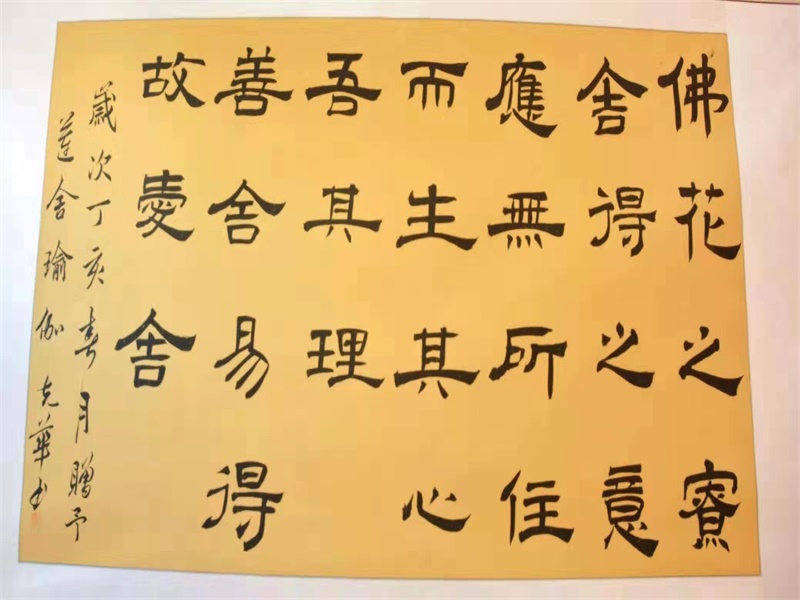 佛花之寮
舎得之意
應無所住
而生其心
吾其理
善舎易得
故憂舎
歲次丁亥春月贈予
蓮舍瑜伽克華书